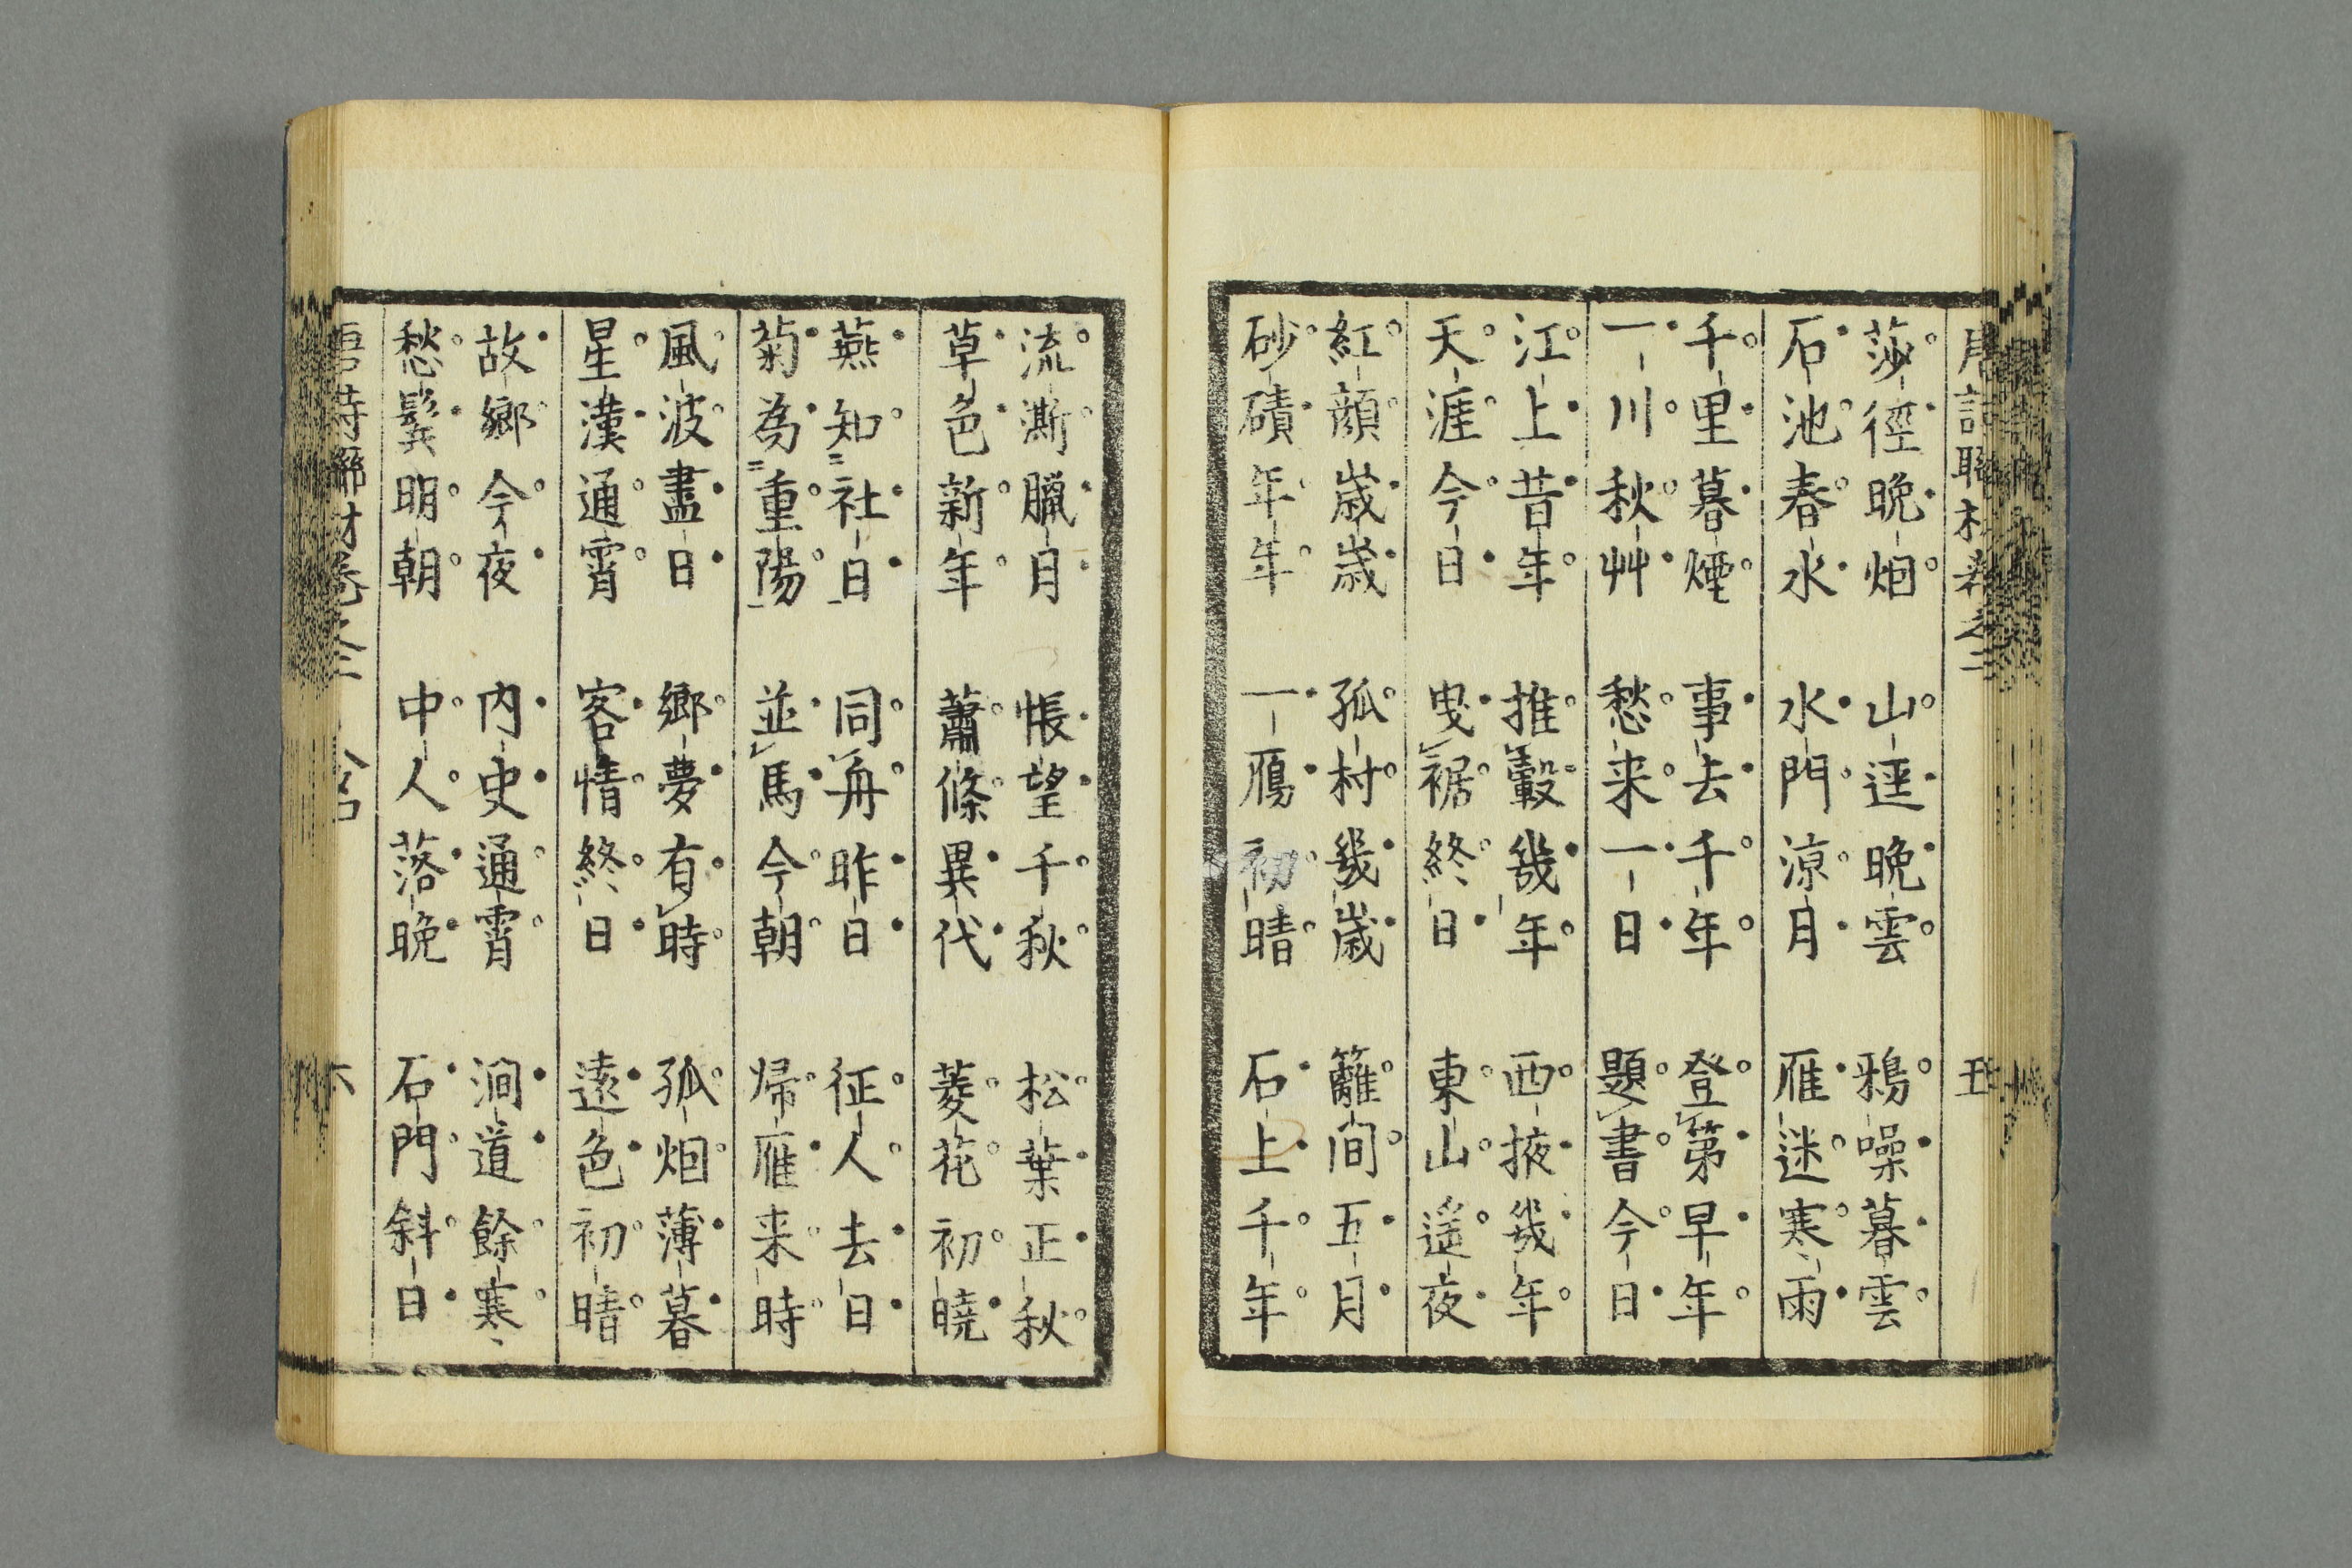 莎徑晩烟 山遥晩雲 鴉噪暮雲
石池春水 水門涼月 雁迷寒雨
千里暮煙 事去千年 登第早年
一川秋艸 愁来一日 題書今日
江上昔年 推轂幾年 西掖幾年
天涯今日 曳裾終日 東山遥夜
紅顔歳歳 孤村幾歳 籬間五月
砂磧年年 一鴈初晴 石上千年
流澌臘月 悵望千秋 松葉正秋
草色新年 蕭條異代 菱花初曉
燕知社日 同舟昨日 征人去日
菊為重陽 並馬今朝 帰雁来時
風波盡日 鄉夢有時 孤烟薄暮
星漢通霄 客情終日 遠色初晴
故鄉今夜 内史通霄 澗道餘寒
愁鬂明朝 中人落晩 石門斜日